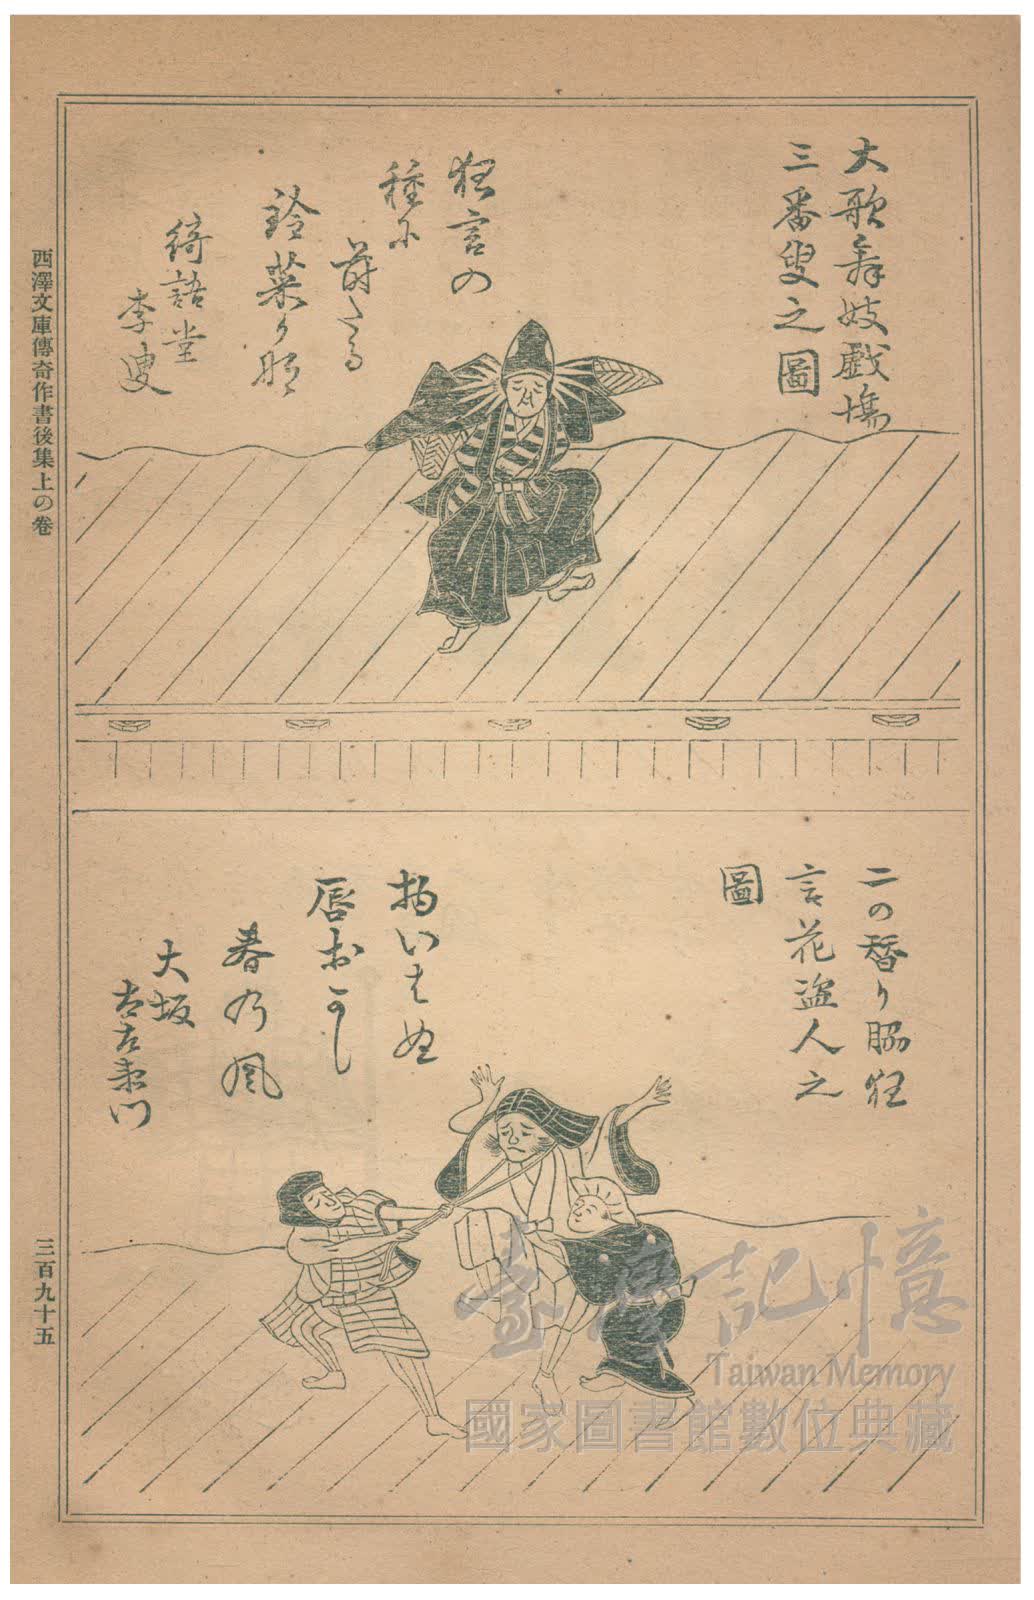 大歌舞妓戯場
三番叟之圖
狂言の
種に
蒔たる
鈴菜か那
綺語堂
李叟
二の替り脇狂
言花盗人之
圖
物いはぬ
唇おかし
春乃風
大坂
古左衛門
西澤文庫傳奇作書後集上の卷
三百九十五
臺灣記憶
Taiwan Memory
國家圖書館數位典藏